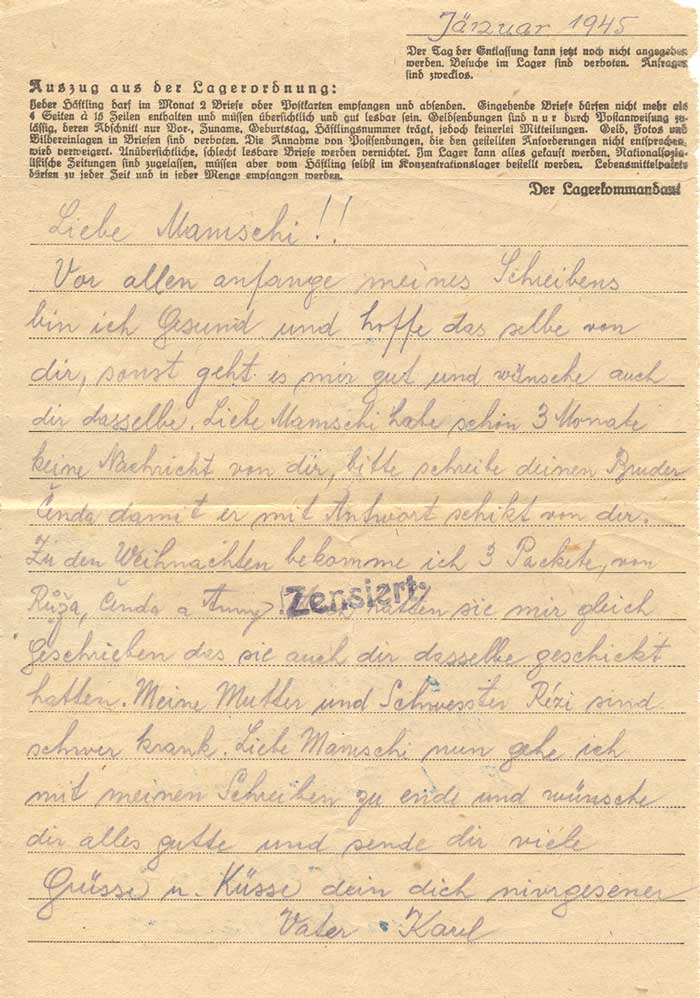 Jänuar 1945
Der Tag der Entlassung kann jetzt noch nicht angegeben
werden. Besuche im Lager sind verboten. Anfragen
sind zwecklos.
Auszug aus der Lagerordnung:
Jeder Häftling darf im Monat 2 Briefe oder Postkarten empfangen und absenden. Eingehende Briefe dürfen nicht mehr als
4 Seiten à 15 Zeilen enthalten und müssen übersichtlich und gut lesbar sein. Geldsendungen sind nur durch Postanweisung zu-
lässig, deren Abschnitt nur Vor-, Zuname, Geburtstag, Häftlingsnummer trägt, jedoch keinerlei Mitteilungen. Geld, Fotos und
Bildereinlagen in Briefen sind verboten. Die Annahme von Postsendungen, die den gestellten Anforderungen nicht entsprechen,
wird verweigert. Unübersichtliche, schlecht lesbare Briefe werden vernichtet. Im Lager kann alles gekauft werden. Nationalsozia-
listische Zeitungen sind zugelassen, müssen aber vom Häftling selbst im Konzentrationslager bestellt werden. Lebensmittelpakete
dürfen zu jeder Zeit und in jeder Menge empfangen werden.
Der Lagerkommandant
Liebe Mamschi!!
Vor allen anfange meines Schreibens
bin ich Gesund und hoffe das selbe von
dir, sonst geht es mir gut und wünsche auch
dir dasselbe. Liebe Mamschi habe schon 3 Monate
keine Nachricht von dir, bitte schreibe deinen Bruder
Čenda damit er mit Antwort schikt von dir.
Zu den Weihnachten bekomme ich 3 Packete, von
Růža, Čenda a Anny. Zensiert hatten sie mir gleich
Geschrieben das sie auch dir dasselbe geschickt
hatten. Meine Mutter und Schwesster Rézi sind
schwer krank. Liebe Mamschi nun gehe ich
mit meinen Schreiben zu ende und wünsche
dir alles gutte und sende dir viele
Grüsse u. Küsse dein dich nivrgesener
Vater Karel